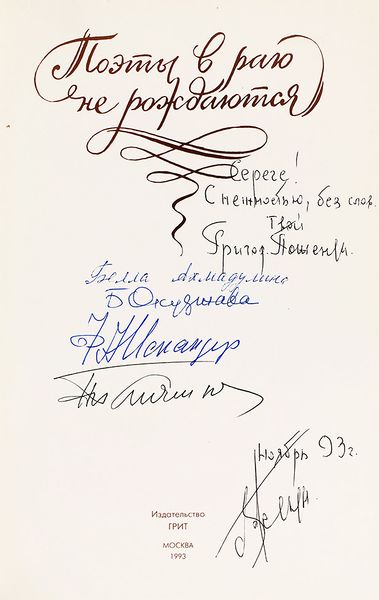 Поэты в раю
не рождаются
Сереге!
С нежностью, без слов.
Твой
Григор.
Белла Ахмадулина
Б Окуджава
Искандер
Ноябрь 93 г.
Издательство
ГРИТ
МОСКВА
1993